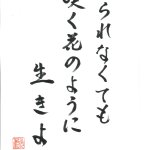 られなくても
咲く花のように
生きよ